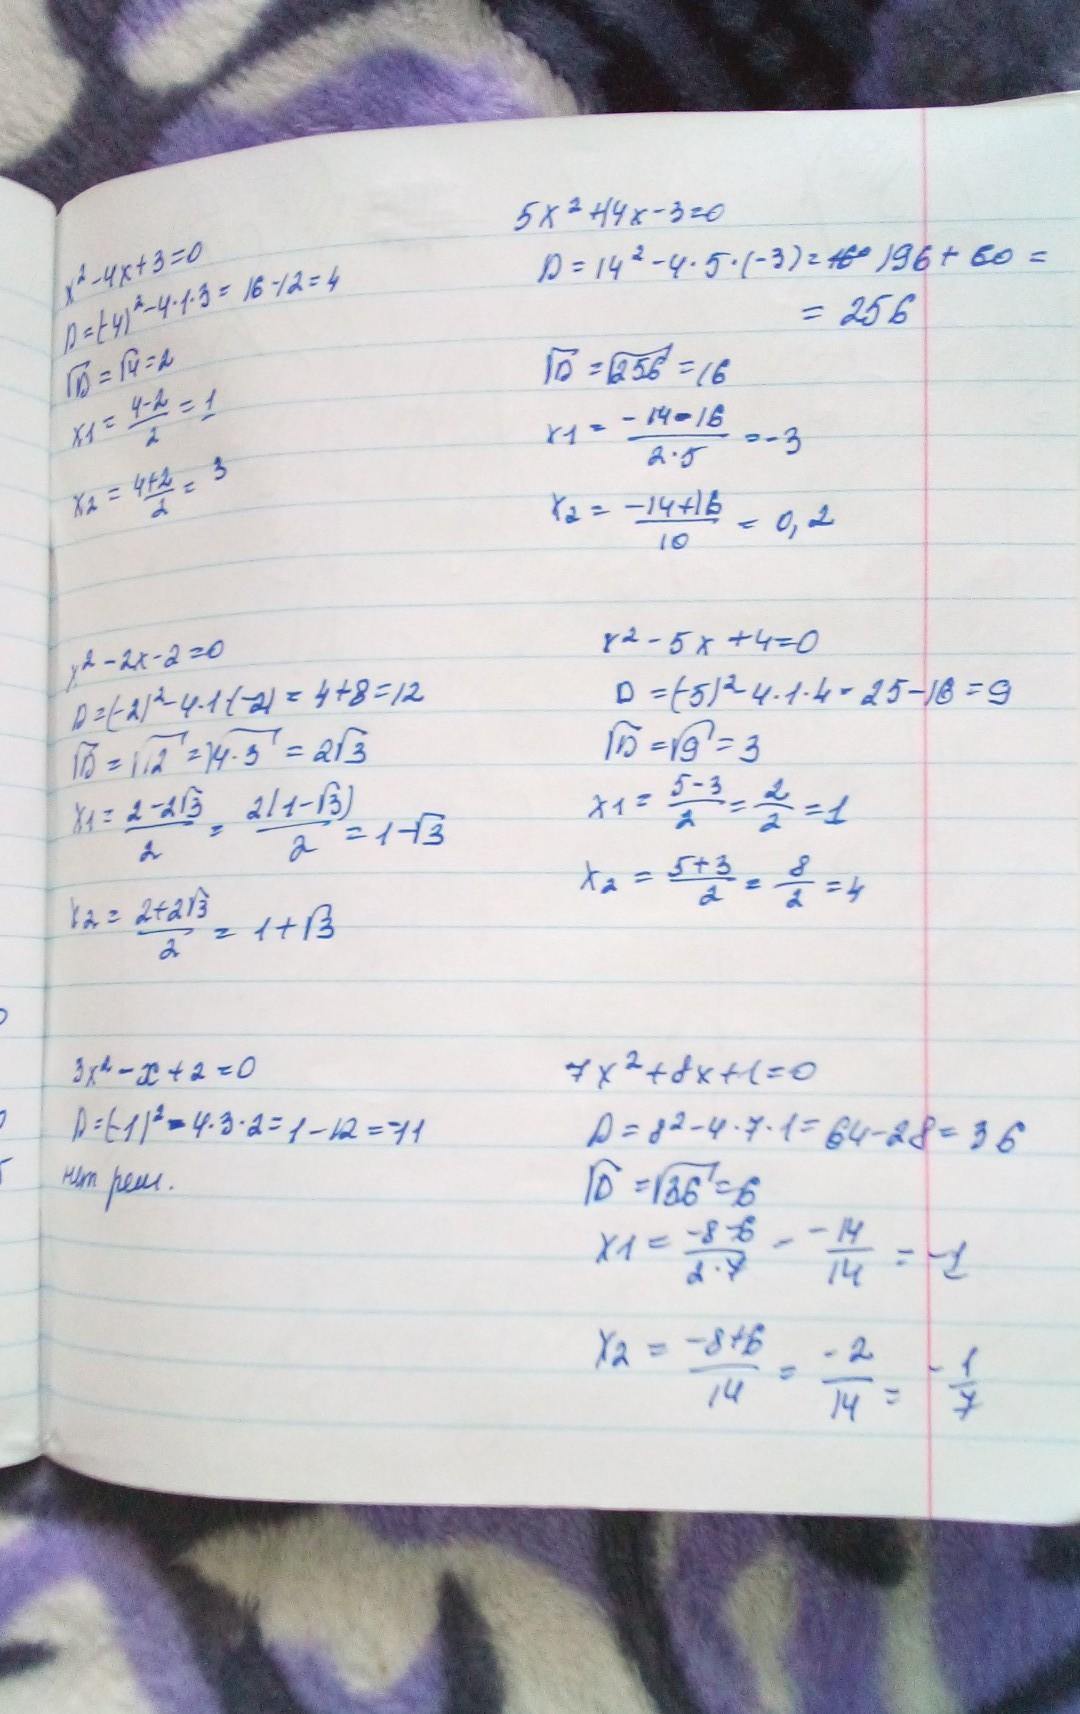 x² - 4x + 3 = 0
D = (-4)² - 4·1·3 = 16 - 12 = 4
√D = √4 = 2
x1 = (4-2)/2 = 1
x2 = (4+2)/2 = 3
5x² + 14x - 3 = 0
D = 14² - 4·5·(-3) = 196 + 60 =
= 256
√D = √256 = 16
x1 = (-14-16)/(2·5) = -3
x2 = (-14+16)/10 = 0,2
x² - 2x - 2 = 0
D = (-2)² - 4·1·(-2) = 4 + 8 = 12
√D = √12 = √4·3 = 2√3
x1 = (2-2√3)/2 = 2(1-√3)/2 = 1-√3
x2 = (2+2√3)/2 = 1+√3
x² - 5x + 4 = 0
D = (-5)² - 4·1·4 = 25 - 16 = 9
√D = √9 = 3
x1 = (5-3)/2 = 2/2 = 1
x2 = (5+3)/2 = 8/2 = 4
3x² - x + 2 = 0
D = (-1)² - 4·3·2 = 1 - 12 = -11
нет реш.
7x² + 8x + 1 = 0
D = 8² - 4·7·1 = 64 - 28 = 36
√D = √36 = 6
x1 = (-8-6)/(2·7) = -14/14 = -1
x2 = (-8+6)/14 = -2/14 = -1/7